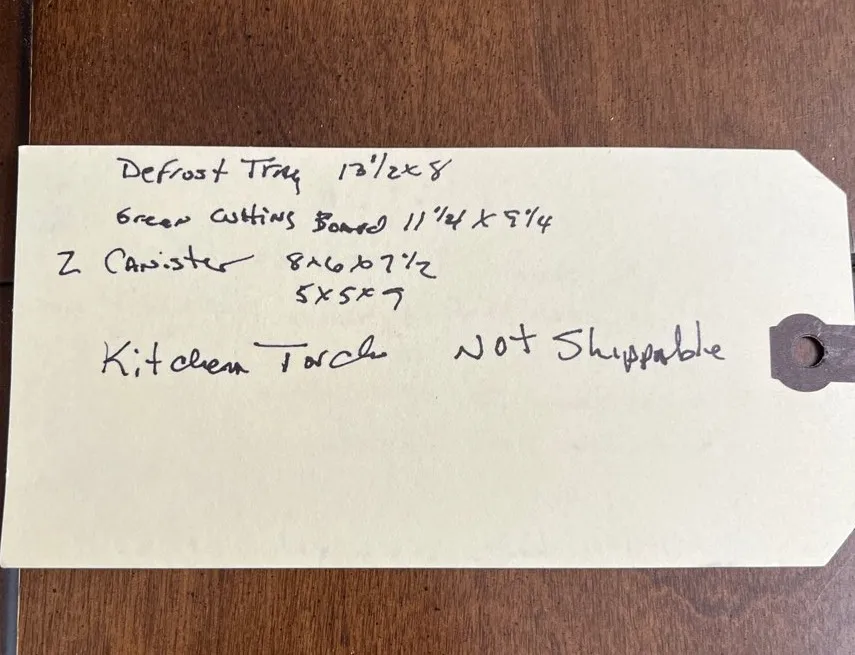 Defrost Tray 13 1/2 x 8
Green Cutting Board 11 1/4 x 9 1/4
2 Canister 8x6x7 1/2
5x5x7
Kitchen Torch Not Shippable